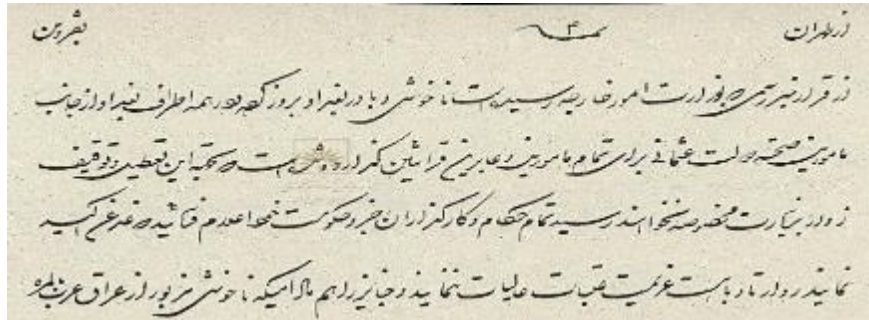 از طهران ۴ بقزوین
از قرار خبر رسمی که بوزارت امور خارجه رسیده است ناخوشی وبا در بغداد بروز کرده در همه اطراف بغداد از جانب
مامورین صحیه دولت عثمانی برای تمام مامورین و عابرین قرانتین گذارده شده است که بجهة این تعطیل و توقیف
زودتر بزیارت مخصوصه نخواهند رسید تمام حکام و کارگذاران جزو حکومت خود اعلام فرمائید که قدغن اکید
نمایند زوار تا دو ماه است عزیمت عتبات عالیات ننمایند و جنایز را هم مادامیکه ناخوشی مزبور از عراق عرب